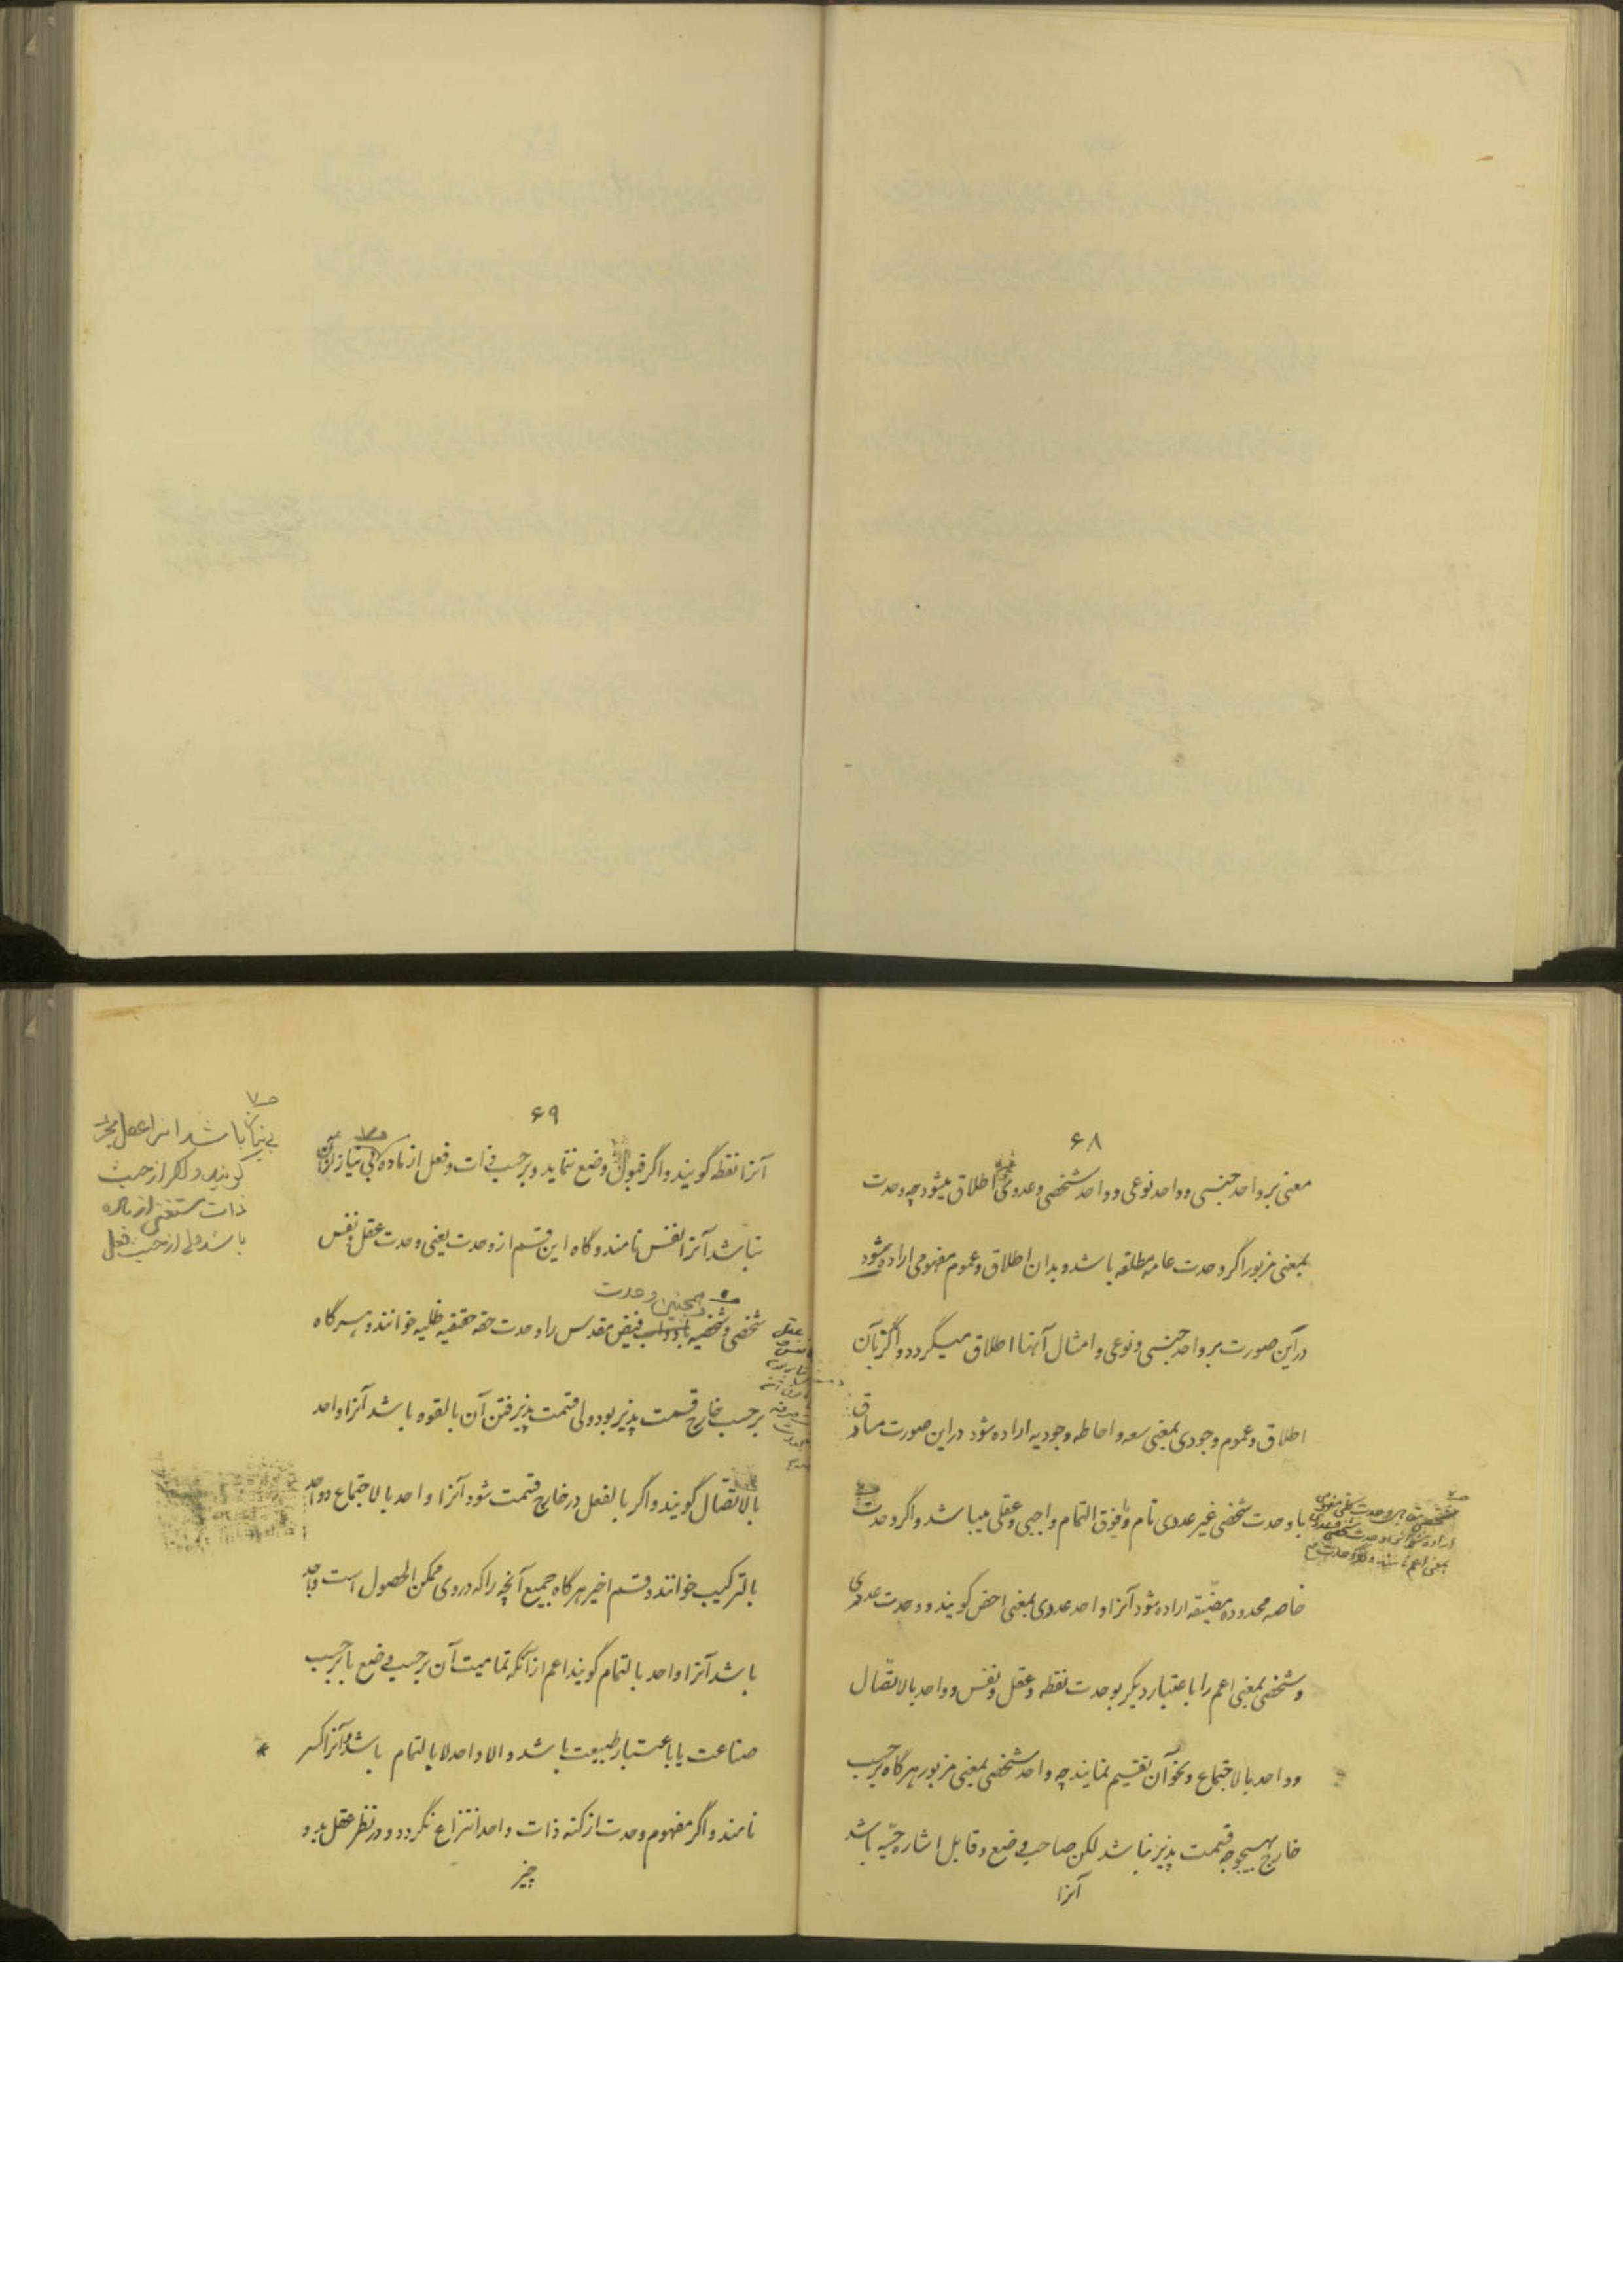 ۶۸
معنی بر واحد جنسی و واحد نوعی و واحد شخصی و عددی اطلاق میشود چه وحدت
بمعنی مزبور اگر وحدت عامه مطلقه باشد و بدان اطلاق و عموم مفهومی اراده شود
در این صورت بر واحد جنسی و نوعی و امثال آنها اطلاق میگردد و اگر بآن
اطلاق و عموم وجودی بمعنی سعه و احاطه وجودیه اراده شود در این صورت مساوق
با وحدت شخصی غیر عددی تام و فوق التمام واجبی و عقلی میباشد و اگر وحدت
خاصه محدوده مضیقه اراده شود آنرا واحد عددی بمعنی اخص گویند و وحدت عددی
و شخصی بمعنی اعم را باعتبار دیگر بوحدت نقطه و عقل و نفس و واحد بالاتصّال
و واحد بالاجتماع و نحو آن تقسیم نمایند چه واحد شخصی بمعنی مزبور هرگاه بر حسب
خارج بهیچوجه قسمت پذیر نباشد لکن صاحب وضع و قابل اشاره حسّیه باشد
آنرا
۶۹
آنرا نقطه گویند و اگر قبول وضع ننماید و بر حسب ذات و فعل از ماده بی نیاز
بی نیاز باشد انرا عقل مجرد
گویند و اگر از حیث
ذات مستغنی از ماده
باشد ولی از حیث فعل
نباشد آنرا نفس نامند و گاه این قسم از وحدت یعنی وحدت عقل و نفس
همچنین وحدت
شخصی و شخصیه فیض مقدس را وحدت حقه حقیقیه ظلیه خوانند و هرگاه
بر حسب خارج قسمت پذیر بود ولی قسمت پذیرفتن آن بالقوه باشد آنرا واحد
بالاتصّال گویند و اگر بالفعل در خارج قسمت شود آنرا واحد بالاجتماع و واحد
بالترکیب خوانند و قسم اخیر هرگاه جمیع آنچه را که در وی ممکن الحصول است واجد
باشد آنرا واحد بالتمام گویند اعم از آنکه تمامیت آن بر حسب وضع یا بر حسب
صناعت یا باعتبار طبیعت باشد والا واحد لا بالتمام باشد و آنرا کسر
نامند و اگر مفهوم وحدت از کنه ذات واحد انتزاع نگردد و در نظر عقل بدو
چیز